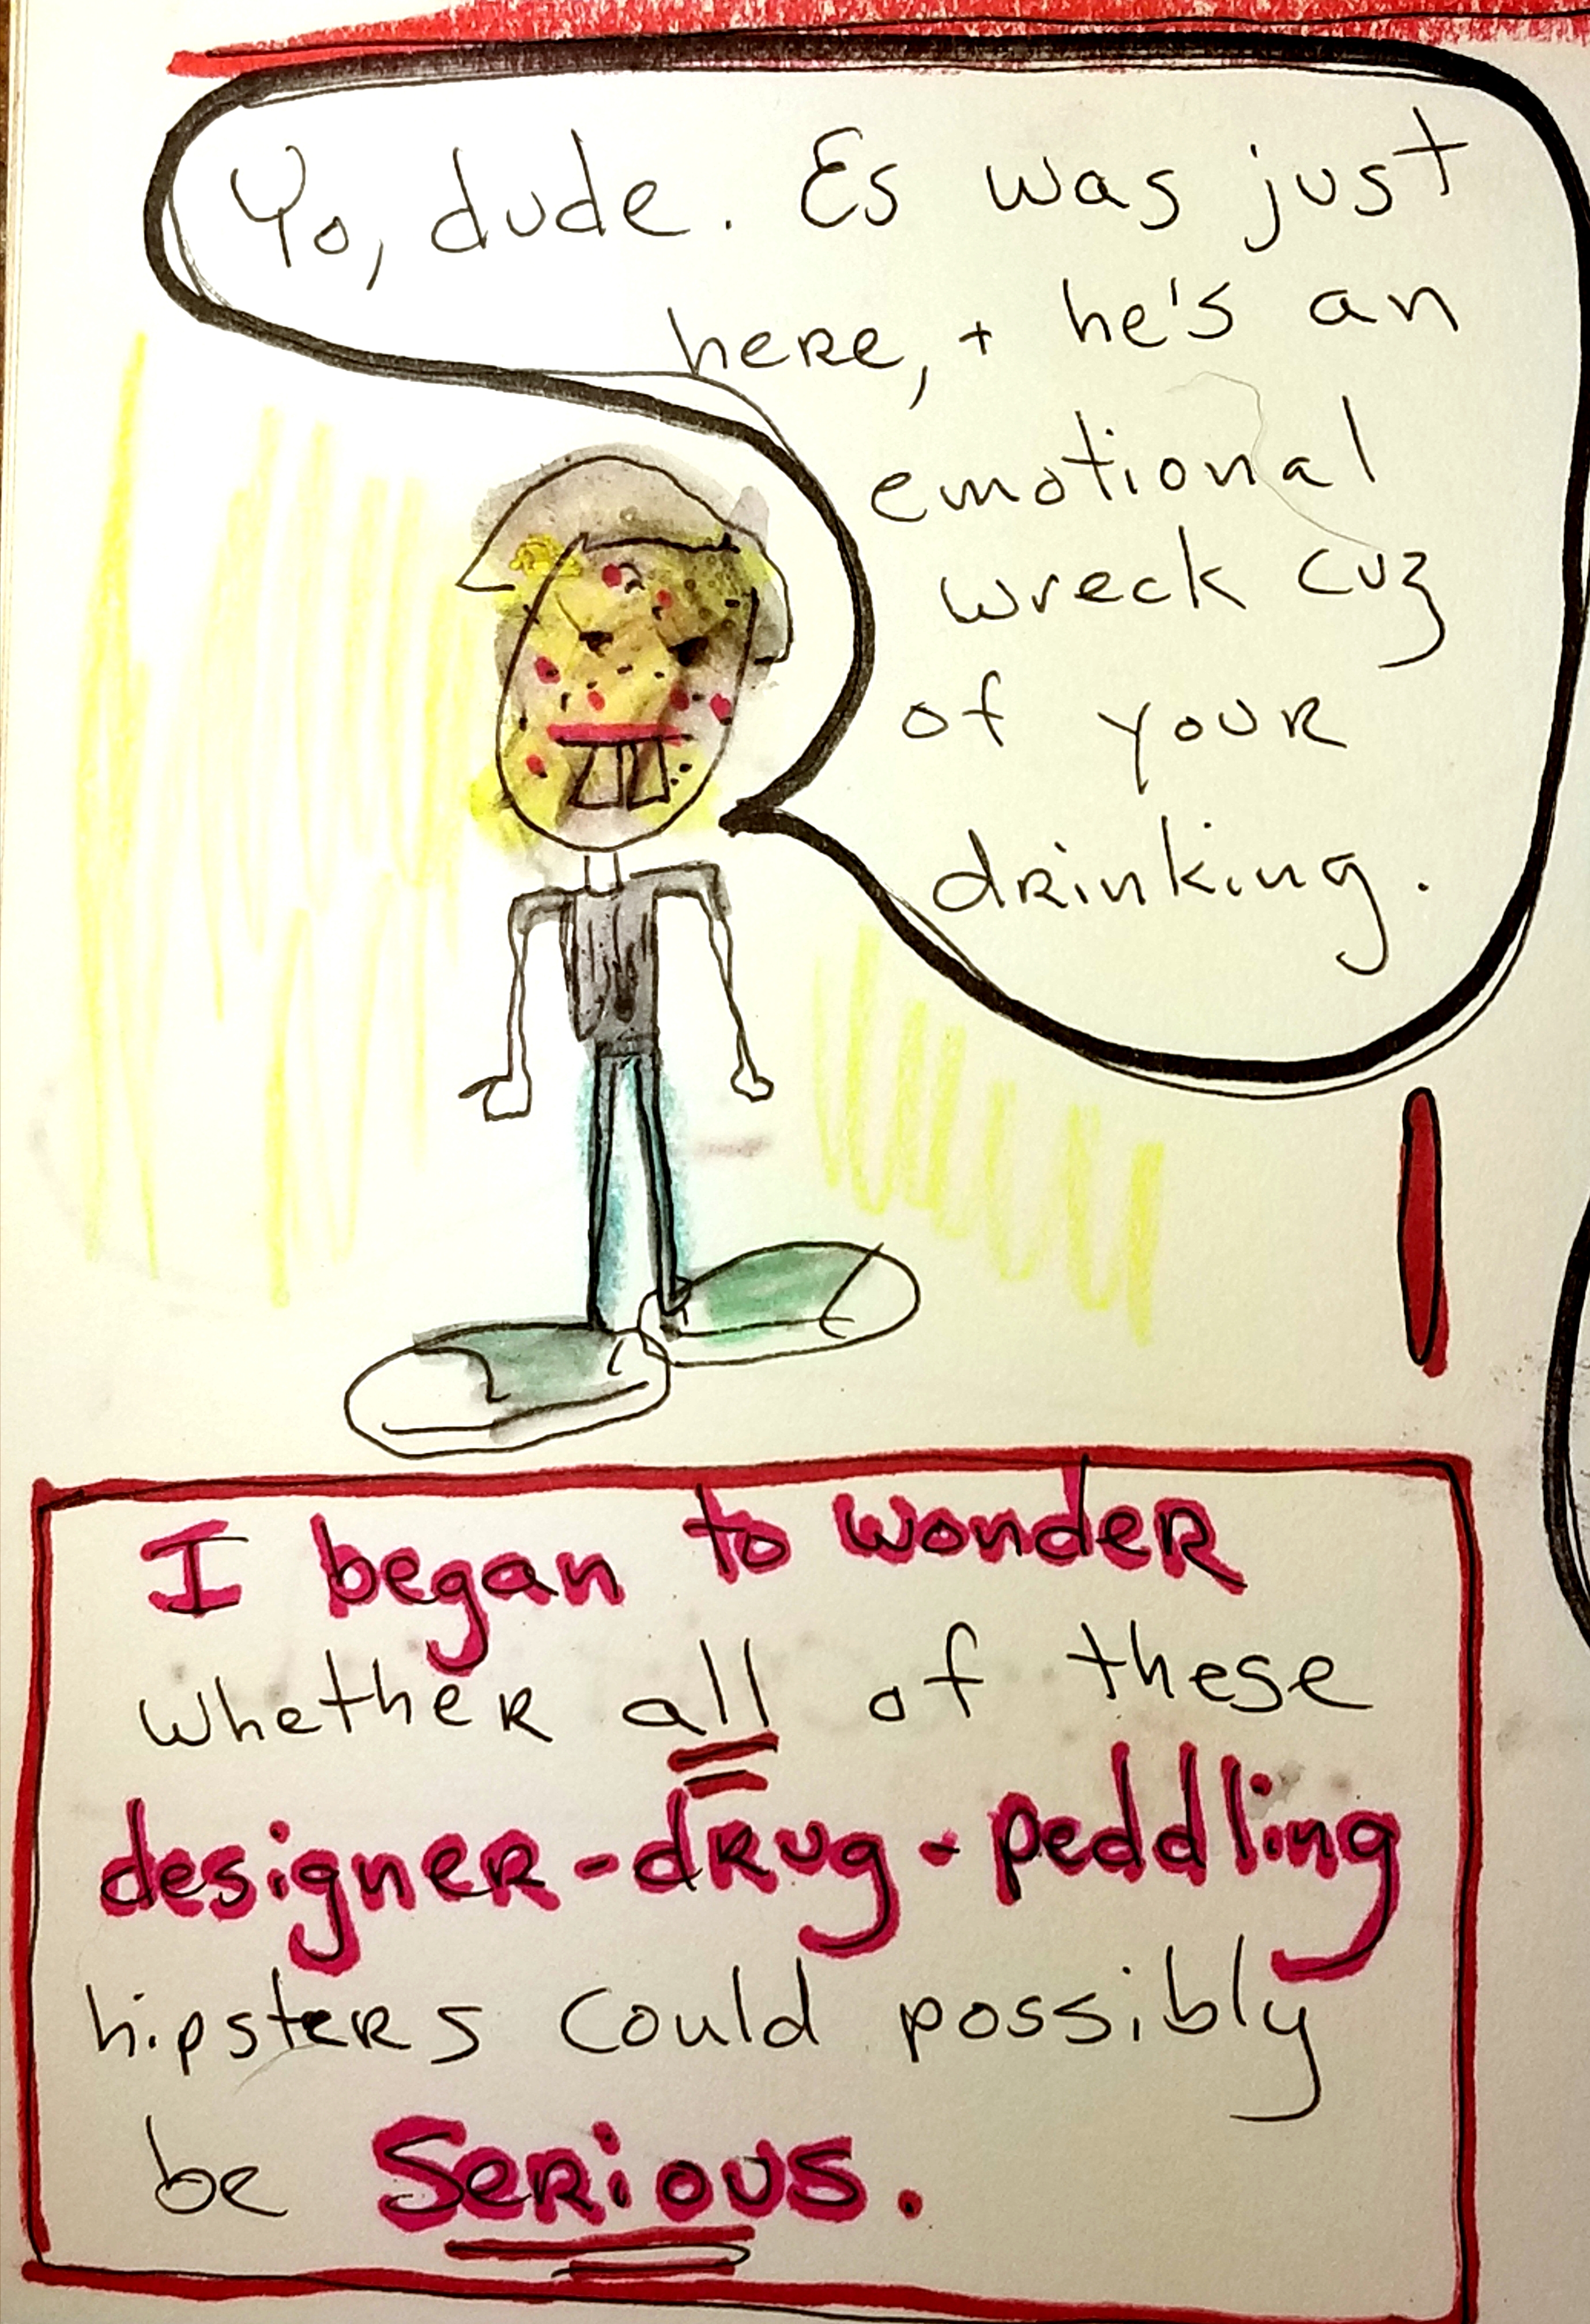 Yo, dude. Es was just
here, + he's an
emotional
wreck cuz
of your
drinking.
I began to wonder
whether all of these
designer-drug-peddling
hipsters could possibly
be serious.